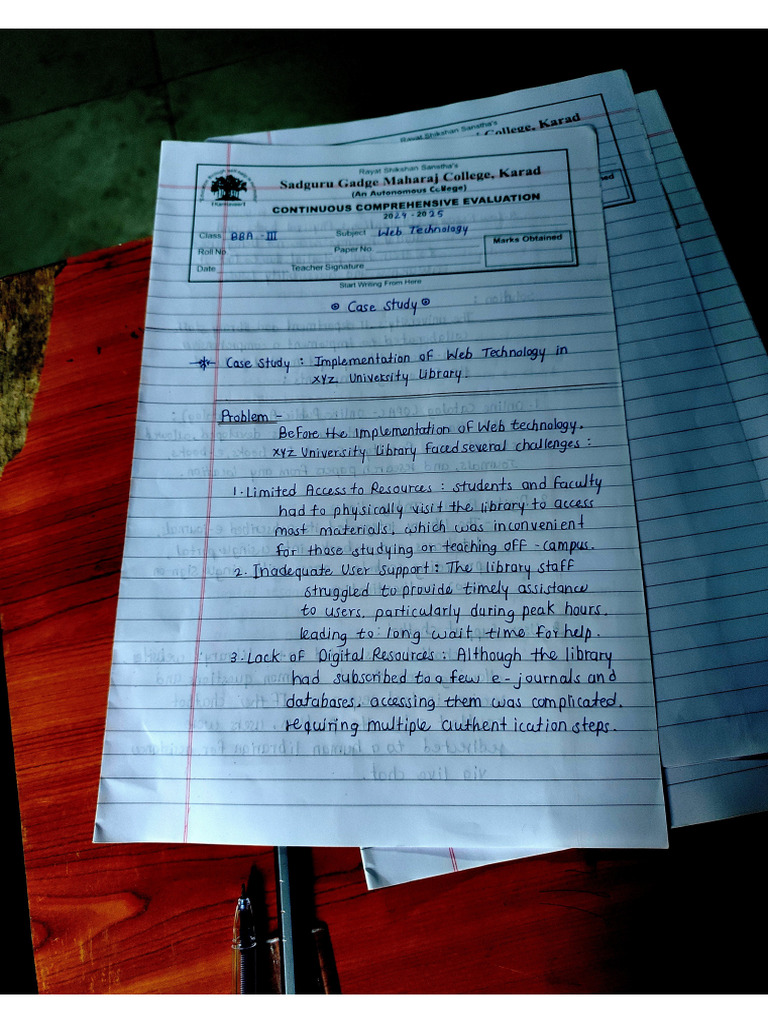 Rayat Shikshan Sanstha's
Sadguru Gadge Maharaj College, Karad
(An Autonomous College)
CONTINUOUS COMPREHENSIVE EVALUATION
2024 - 2025
Class BBA - III Subject Web Technology
Roll No. Paper No. Marks Obtained
Date Teacher Signature
Start Writing From Here
Case Study
Case Study : Implementation of Web Technology in
XYZ University Library.
Problem -
Before the Implementation of Web technology,
XYZ University Library faced several challenges :
1. Limited Access to Resources : students and Faculty
had to physically visit the library to access
most materials, which was inconvenient
for those studying or teaching off - campus.
2. Inadequate User Support : The library staff
struggled to provide timely assistance
to users, particularly during peak hours.
leading to long wait time for help.
3. Lack of Digital Resources : Although the library
had subscribed to a few e - journals and
databases, accessing them was complicated.
requiring multiple authentication steps.
Rayat Shikshan Sanstha's
College, Karad